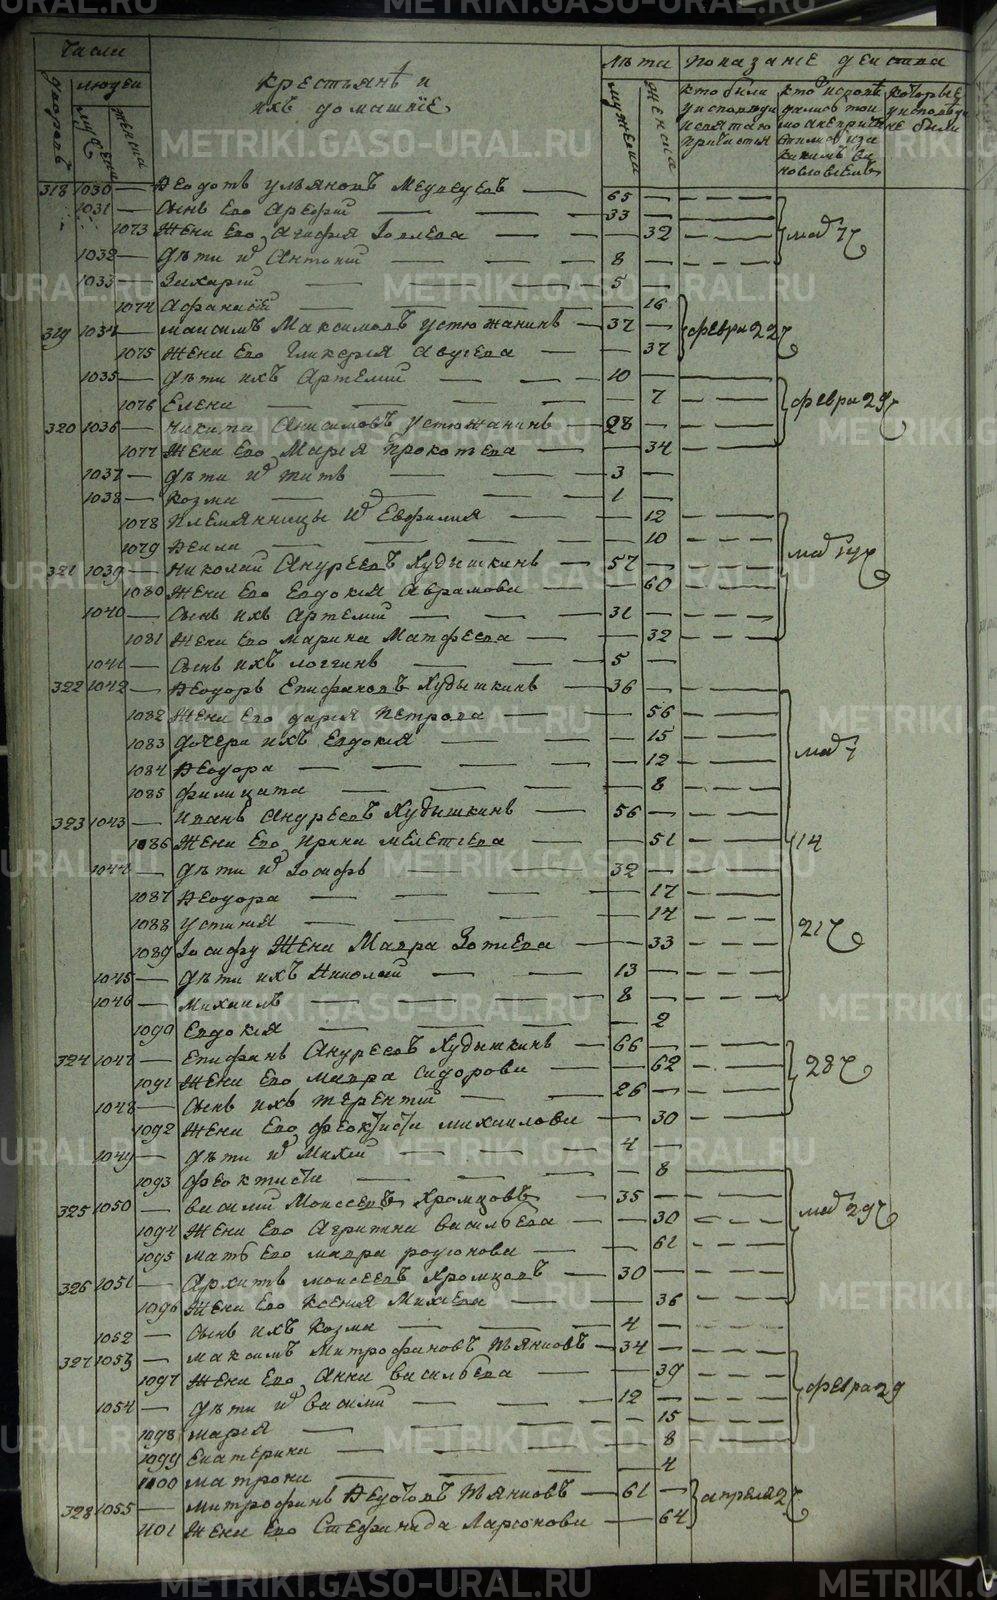 Числа
крестьянѣ и
ихъ домашнїе
лѣта показанїе действа
дворовъ людей
мужеска женска
мужеска женска
кто были у исповеди и святаго причастия
которые у исповеди не были
318 1030 — Ѳедотъ ульяновъ Медведевъ — 65
1031 — Сынъ Его Арефїй — 33
1073 Жена Его Агафїя — 32
маїя 7
1032 — дѣти их Антонїй — 8
1033 — Захарїй — 5
1074 Афанасїя — 16
319 1034 — Максимъ Максимовъ устюжанинъ — 37
февраля 22
1075 Жена Его Гликерїя — 37
1035 — дѣти ихъ Артемїй — 10
1076 Елена — 7
февра 29
320 1036 — Никита Анисимовъ устюжанинъ — 28
1077 Жена Его Марїя Прокопьева — 34
1037 — дѣти их титъ — 3
1038 — Козма — 1
1078 Племянницы их Евфимия — 12
1079 Ѳекла — 10
321 1039 — Николай Андреевъ Худышкинъ — 57
маїя 14
1080 Жена Его Евдокїя Аврамова — 60
1040 — Сынъ ихъ Артемїй — 31
1081 Жена Его Марина Матфеева — 32
1041 — Сынъ ихъ логгинъ — 5
322 1042 — Ѳеодоръ Епифановъ Худышкинъ — 36
1082 Жена Его дарїя Петрова — 56
1083 Дочери ихъ Евдокїя — 15
маїя 7
1084 Ѳеодора — 12
1085 Филицата — 8
323 1043 — Иванъ Андреевъ Худышкинъ — 56
1086 Жена Его Ирина мелетїева — 51
14
1044 — дѣти их Іосифъ — 32
1087 Ѳеодора — 17
1088 устинїя — 14
21
1089 Іосифу Жена Мавра Зотїева — 33
1045 — дѣти ихъ Николай — 13
1046 — Михаилъ — 8
1090 Евдокїя — 2
324 1047 — Епифанъ Андреевъ Худышкинъ — 66
28
1091 Жена Его мавра Сидорова — 62
1048 — Сынъ ихъ терентїй — 26
1092 Жена Его феоктиста михаилова — 30
1049 — дѣти их Михей — 4
1093 Феоктиста — 8
325 1050 — Василїй Моисеевъ Хромцовъ — 35
маїя 29
1094 Жена Его Агрипина Васильева — 30
1095 Мать Его мавра родионова — 61
326 1051 — Архипъ моисеевъ Хромцовъ — 30
1096 Жена Его Ксенїя Михеева — 36
1052 — Сынъ ихъ Козма — 4
327 1053 — Максимъ Митрофановъ — 34
1097 Жена Его Анна Васильева — 39
февра 29
1054 — дѣти их Василїй — 12
1098 Марїя — 15
1099 Екатерина — 8
1100 Матрона — 4
328 1055 — Митрофанъ Ѳедотовъ — 61
апреля 2
1101 Жена Его Стефанида Ларїонова — 64
METRIKI.GASO-URAL.RU